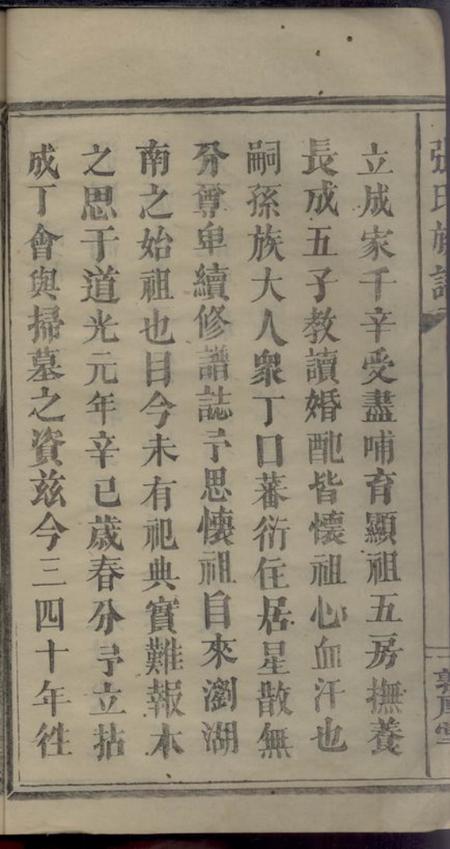 張氏族譜
立成家千辛受盡哺育顯祖五房撫養
長成五子教讀婚配皆懷祖心血汗也
嗣孫族大人衆丁口蕃衍住居星散無
分尊卑續修譜誌予思懷祖自來瀏湖
南之始祖也目今未有祀典實難報本
之思于道光元年辛巳歲春分予立拈
成丁會與掃墓之資兹今三四十年徃